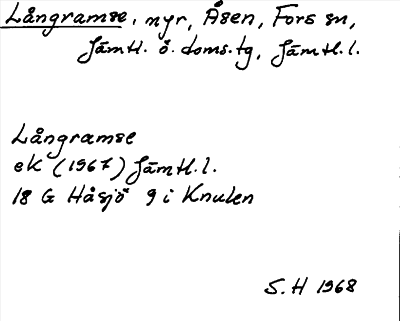 Långramse, nyr, Åsen, Fors sn,
Jämtl. ö. doms.tg, Jämtl.l.
Långramse
ek (1967) Jämtl.l.
18 G Håsjö 9 i Knulen
S.H 1968